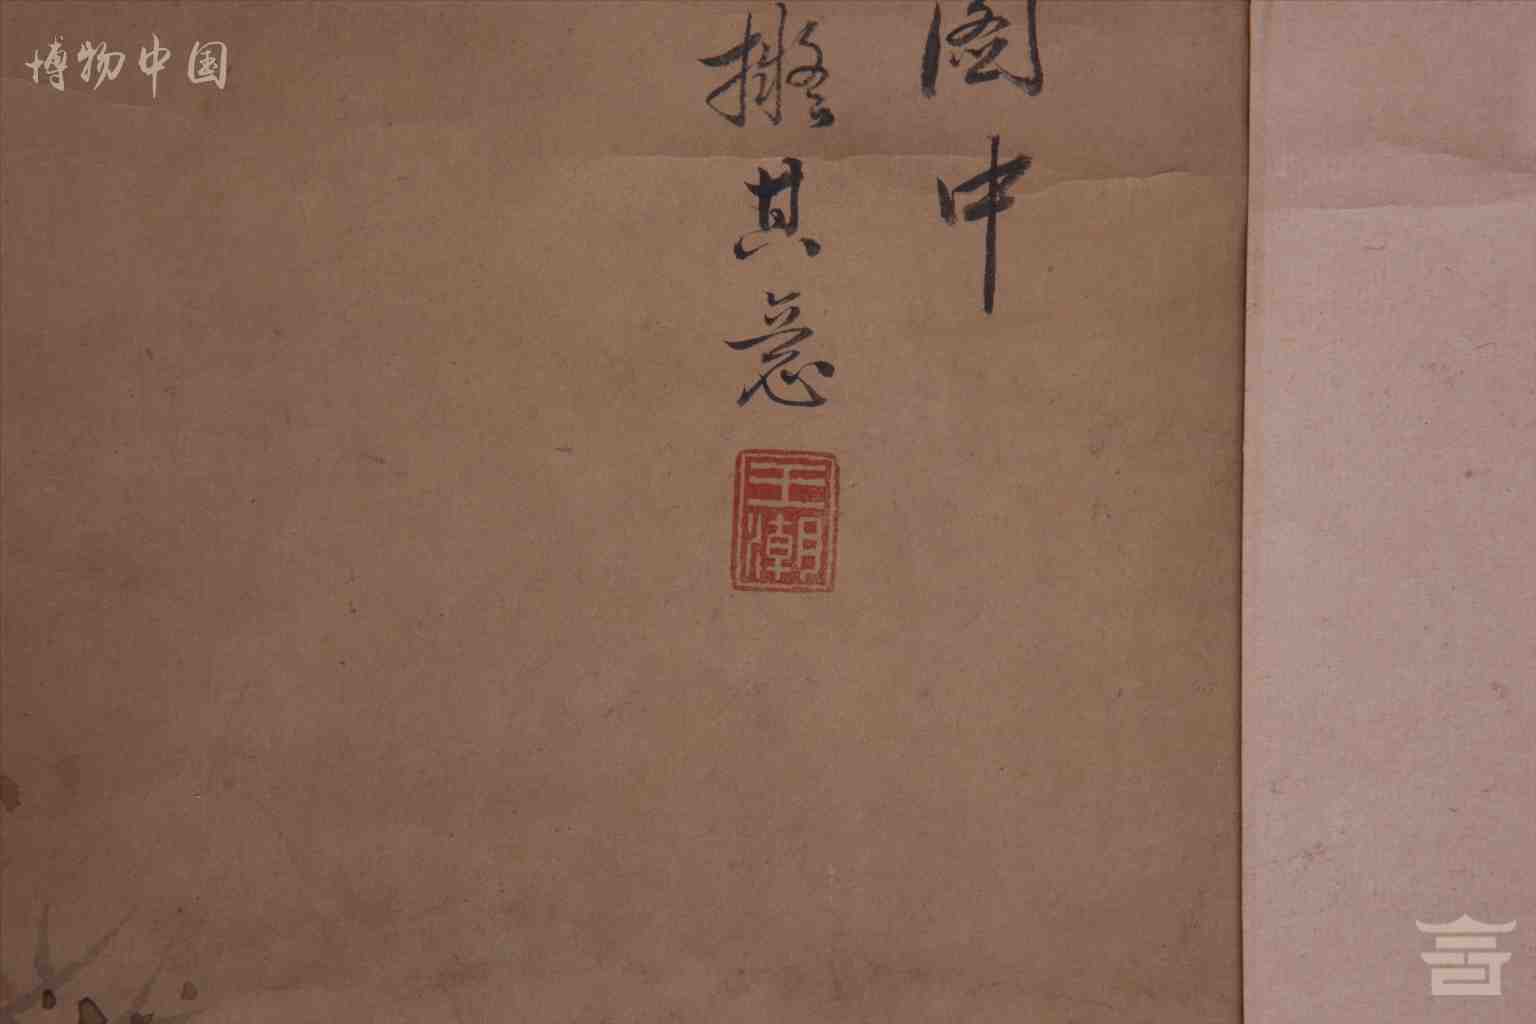 博物中国
图中
擬其意
王潮